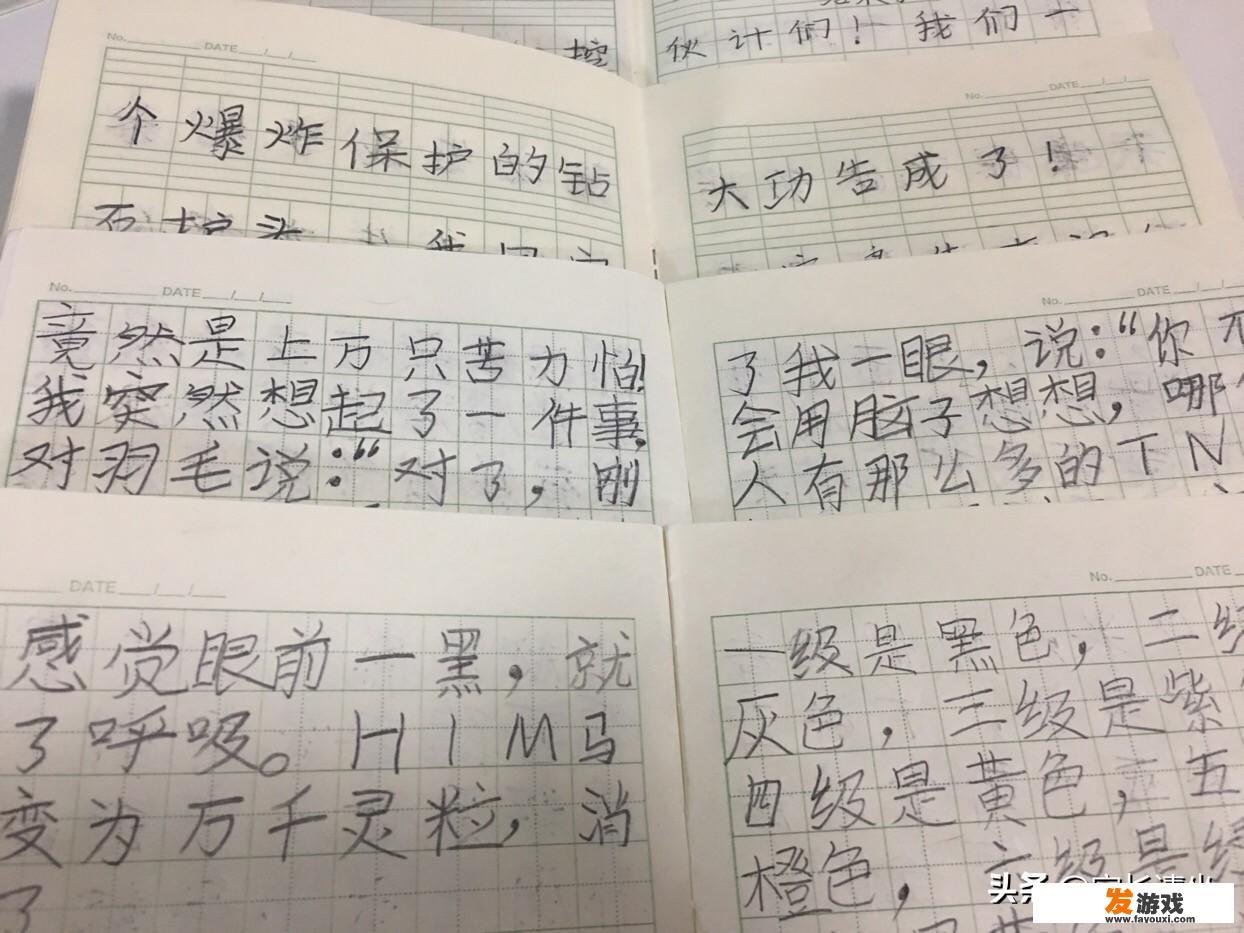 控
伙计们！我们一
No. DATE / /
个爆炸保护的钻
No. DATE / /
大功告成了！
No. DATE / /
竟然是上万只苦力怕!
我突然想起了一件事,
对羽毛说：“对了，刚
No. DATE / /
了我一眼，说：“你不
会用脑子想想，哪
人有那么多的TN
DATE / /
感觉眼前一黑，就
了呼吸。HIM马
变为万千灵粒，消
了
No. DATE
一级是黑色，二级
灰色，三级是紫
四级是黄色，五
橙色，六级是绿
头条
发游戏
www.fayouxi.com